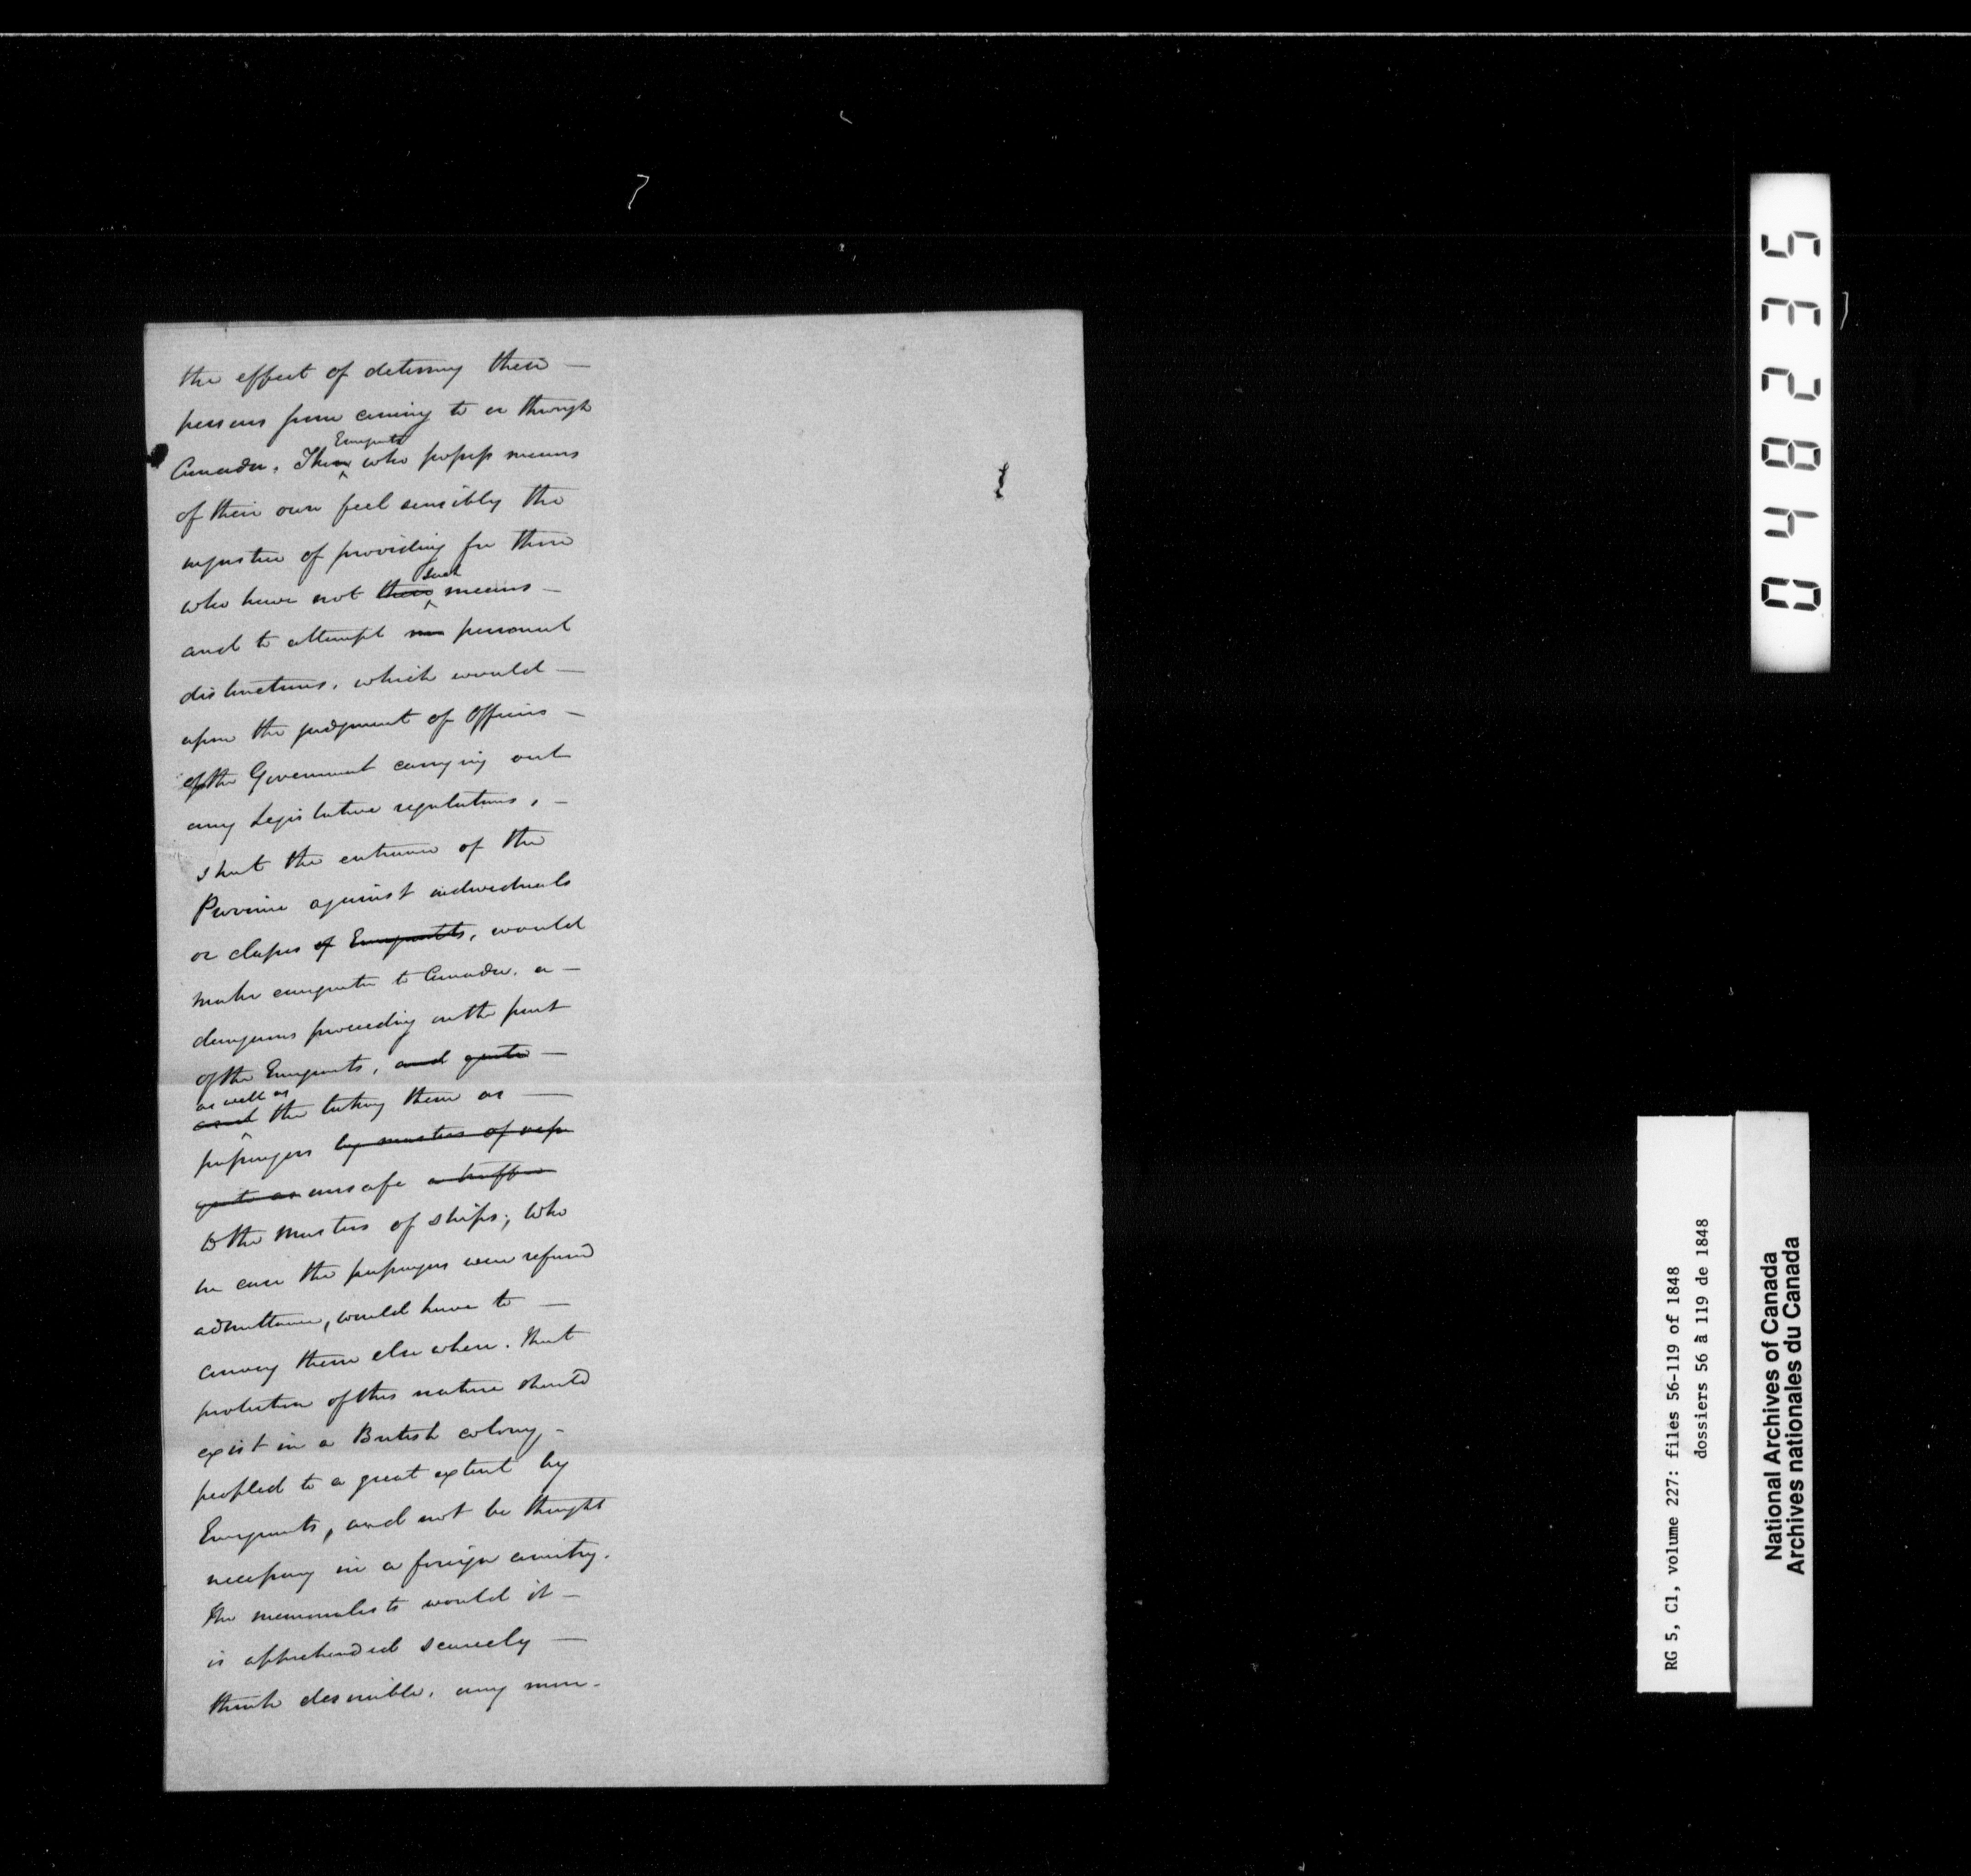 the effect of deterring these —
persons from coming to or through
Emigrants
Canada. Those who possess means
of their own feel sensibly the
injustice of providing for those
such
who have not their means —
and to attempt personal
distinctions, which would —
upon the judgment of Officers —
of the Government carrying out
any Legislative regulations, —
shut the entrance of the
Province against individuals
or classes of Emigrants, would
make emigration to Canada, a —
dangerous proceeding on the part
of the Emigrants, and quite —
as well as
and the taking them as —
passengers by masters of
quite as unsafe
to the Masters of ships; who
in case the passengers were refused
admittance, would have to —
convey them elsewhere. That
protection of this nature should
exist in a British colony, -
peopled to a great extent by
Emigrants, and not be thought
necessary in a foreign country.
The memorialists would it —
is apprehended scarcely —
think desirable, any more -
048235
RG 5, C1, volume 227: files 56-119 of 1848
dossiers 56 à 119 de 1848
National Archives of Canada
Archives nationales du Canada